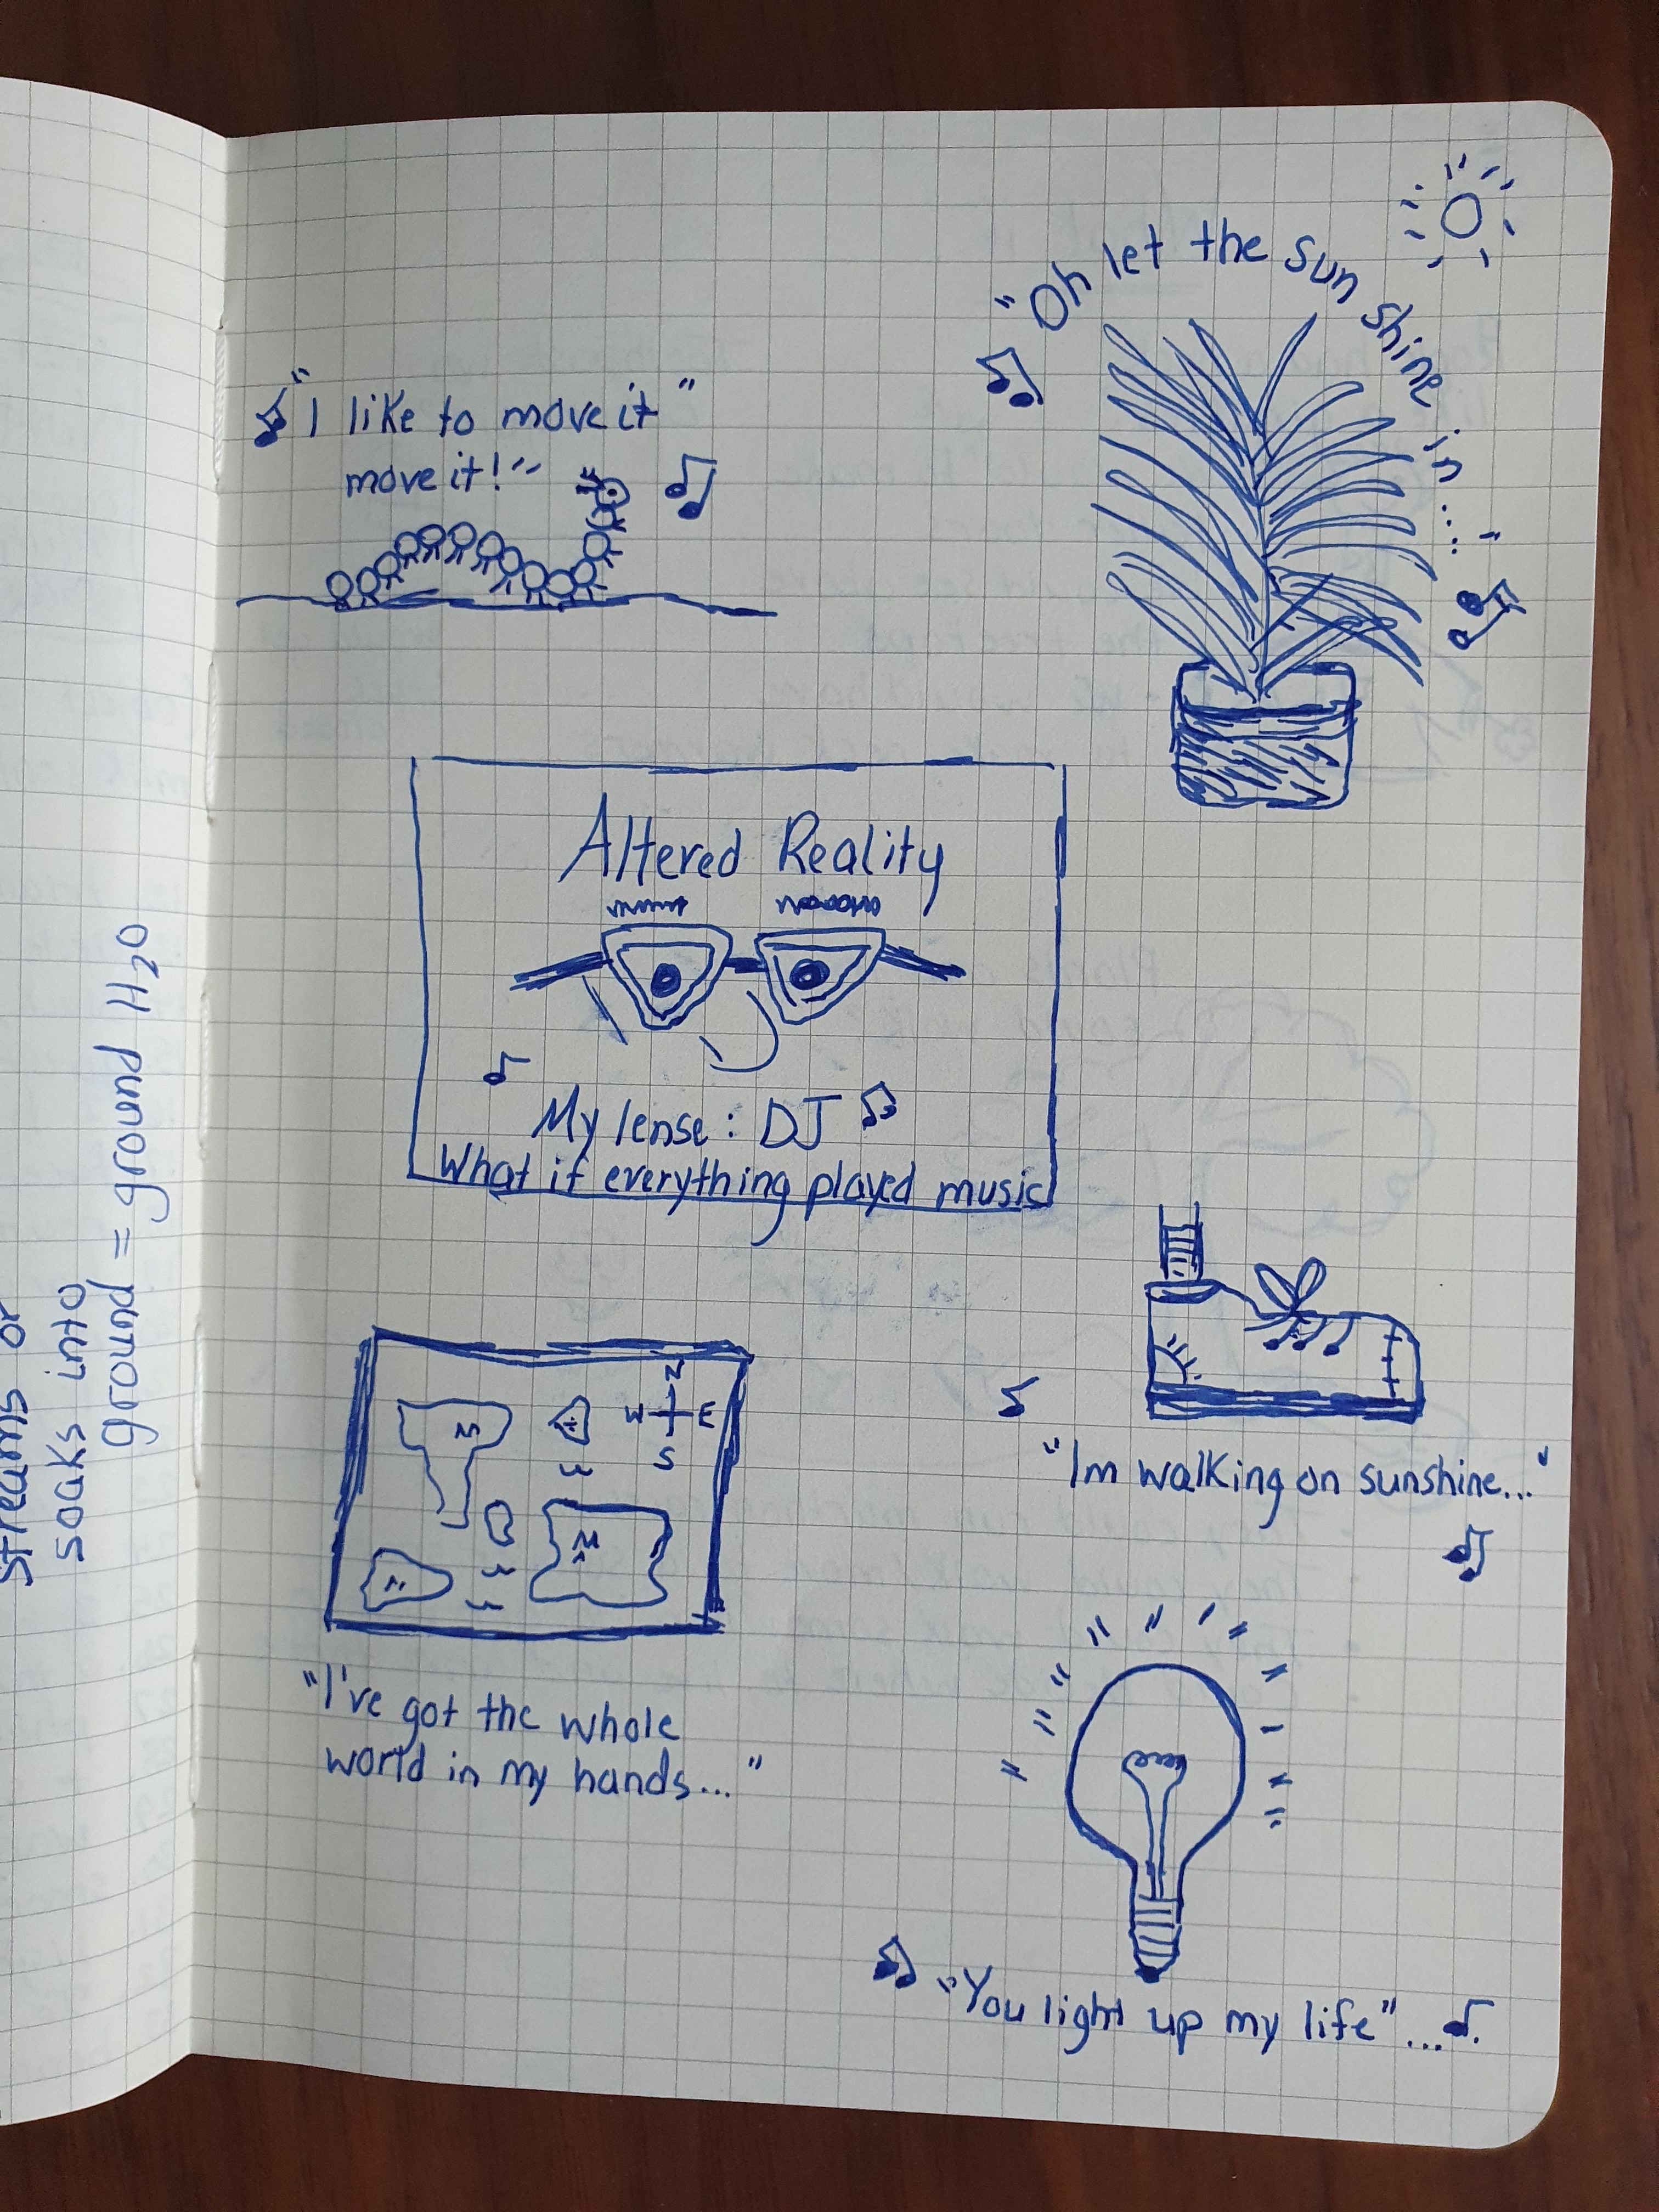 streams or
soaks into
ground = ground H₂O
"Oh let the sun shine in..."
"I like to move it"
move it!"
Altered Reality
My lense: DJ
What if everything played music
N
W E
S
"Im walking on sunshine..."
"I've got the whole
world in my hands..."
"You light up my life"...